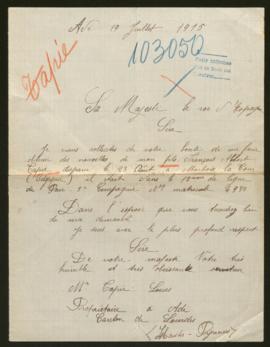 Adé 19 Juillet 1915
103050
Tapie
Sa Majesté le roi d'Espagne
Sire
Je vous sollicite de votre bonté de me faire
des nouvelles de mon fils François Albert
Tapie disparu le 23 Août à
il était dans le ligne
de Pau 1e Compagnie Nº matricule
Dans l'espoir que vous voudrez bien
ma demande
Je suis avec le plus profond respect
Sire
De votre majesté Votre très
humble et très obéissant serviteur
Mr Tapie Louis
Propriétaire à Adé
Canton de Lourdes
(Hautes-Pyrénées)